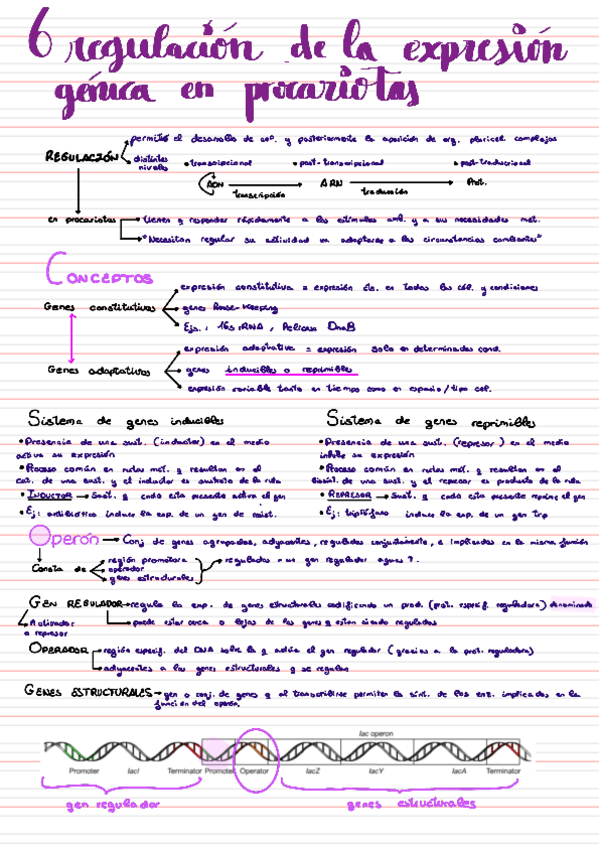 6 regulación de la expresión
génica en procariotas
permitió el desarrollo de cel. y posteriormente la aparición de org. pluricel. complejos
REGULACIÓN
distintos niveles • transcripcional • post-transcripcional • post-traduccional
ADN transcripción ARN traducción Prot.
en procariotas tienen q responder rápidamente a los estímulos amb. y a sus necesidades met.
"Necesitan regular su actividad xa adaptarse a las circunstancias cambiantes"
CONCEPTOS
expresión constitutiva = expresión en todas las cél. y condiciones
Genes constitutivos genes House-Keeping
Ejs.: 16s rRNA, Helicasa DnaB
expresión adaptativa = expresión solo en determinadas cond.
Genes adaptativos genes inducibles o reprimibles
expresión variable tanto en tiempo como en espacio/tipo cel.
Sistema de genes inducibles
• Presencia de una sust. (inductor) en el medio
activa su expresión
• Proceso común en rutas met. q resultan en el
cat. de una sust. y el inductor es sustrato de la ruta
• INDUCTOR → Sust. q cndo esta presente activa el gen
• Ej: antibiótico induce la exp. de un gen de resist.
Sistema de genes reprimibles
• Presencia de una sust. (represor) en el medio
inhibe su expresión
• Proceso común en rutas met. q resultan en el
biosínt. de una sust. y el represor es producto de la ruta
• REPRESOR → Sust. q cndo esta presente reprime el gen
• Ej: triptófano induce la exp. de un gen trp
Operón → Conj. de genes agrupados, adyacentes, regulados conjuntamente, e implicados en la misma función
Consta de región promotora
operador
genes estructurales
regulados x un gen regulador
GEN REGULADOR → regula la exp. de genes estructurales codificando un prod. (prot. específ. reguladora) denominado
Activador
o represor
puede estar cerca o lejos de los genes q están siendo regulados
OPERADOR región específ. del DNA sobre la q actúa el gen regulador (gracias a la prot. reguladora)
adyacentes a los genes estructurales q se regulan
GENES ESTRUCTURALES → gen o conj. de genes q al transcribirse permiten la sínt. de las enz. implicadas en la
función del operón
lac operon
Promoter lacI Terminator Promoter Operator lacZ lacY lacA Terminator
gen regulador genes estructurales